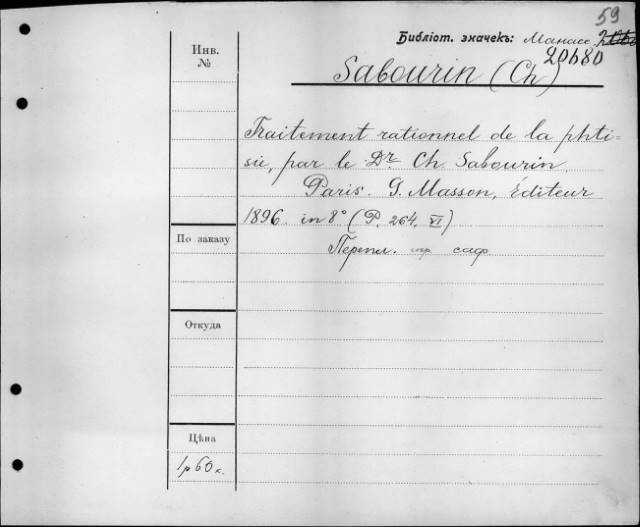 59
Библіот. значекъ: Манасе
20b80
Инв.
№
Sabourin (Ch)
Traitement rationnel de la phti-
sie, par le Dr. Ch. Sabourin.
Paris. G. Masson, Éditeur
1896. in 8° (P. 264, VI)
По заказу
Перепл. саф
Откуда
Цѣна
1р 60 к.